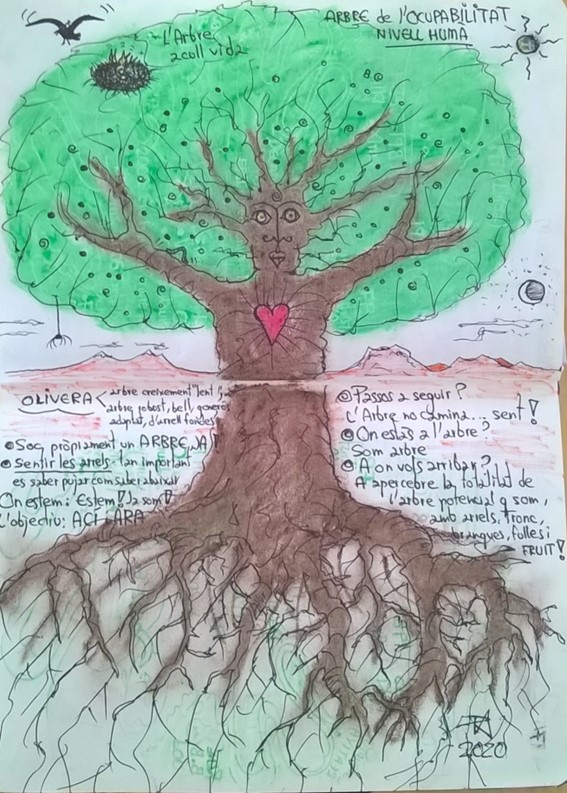 ARBRE de l'OCUPABILITAT
NIVELL HUMA
L'Arbre
acull vida
OLIVERA < arbre creixement "lent",
arbre robost, bell, generós
adaptat, d'arrell fondes
Soc pròpiament un ARBRE JA!
Sentir les arrels. Tan important
es saber pujar com saber abaixar
On estem: Estem! Ja som!
L'objectiu: ACÍ i ARA
Passos a seguir?
L'Arbre no camina... sent!
On estàs a l'arbre?
Som arbre
A on vols arribar?
A apercebre la totalitat de
l'arbre potencial q som,
amb arrels, tronc,
branques, fulles i
FRUIT!
2020